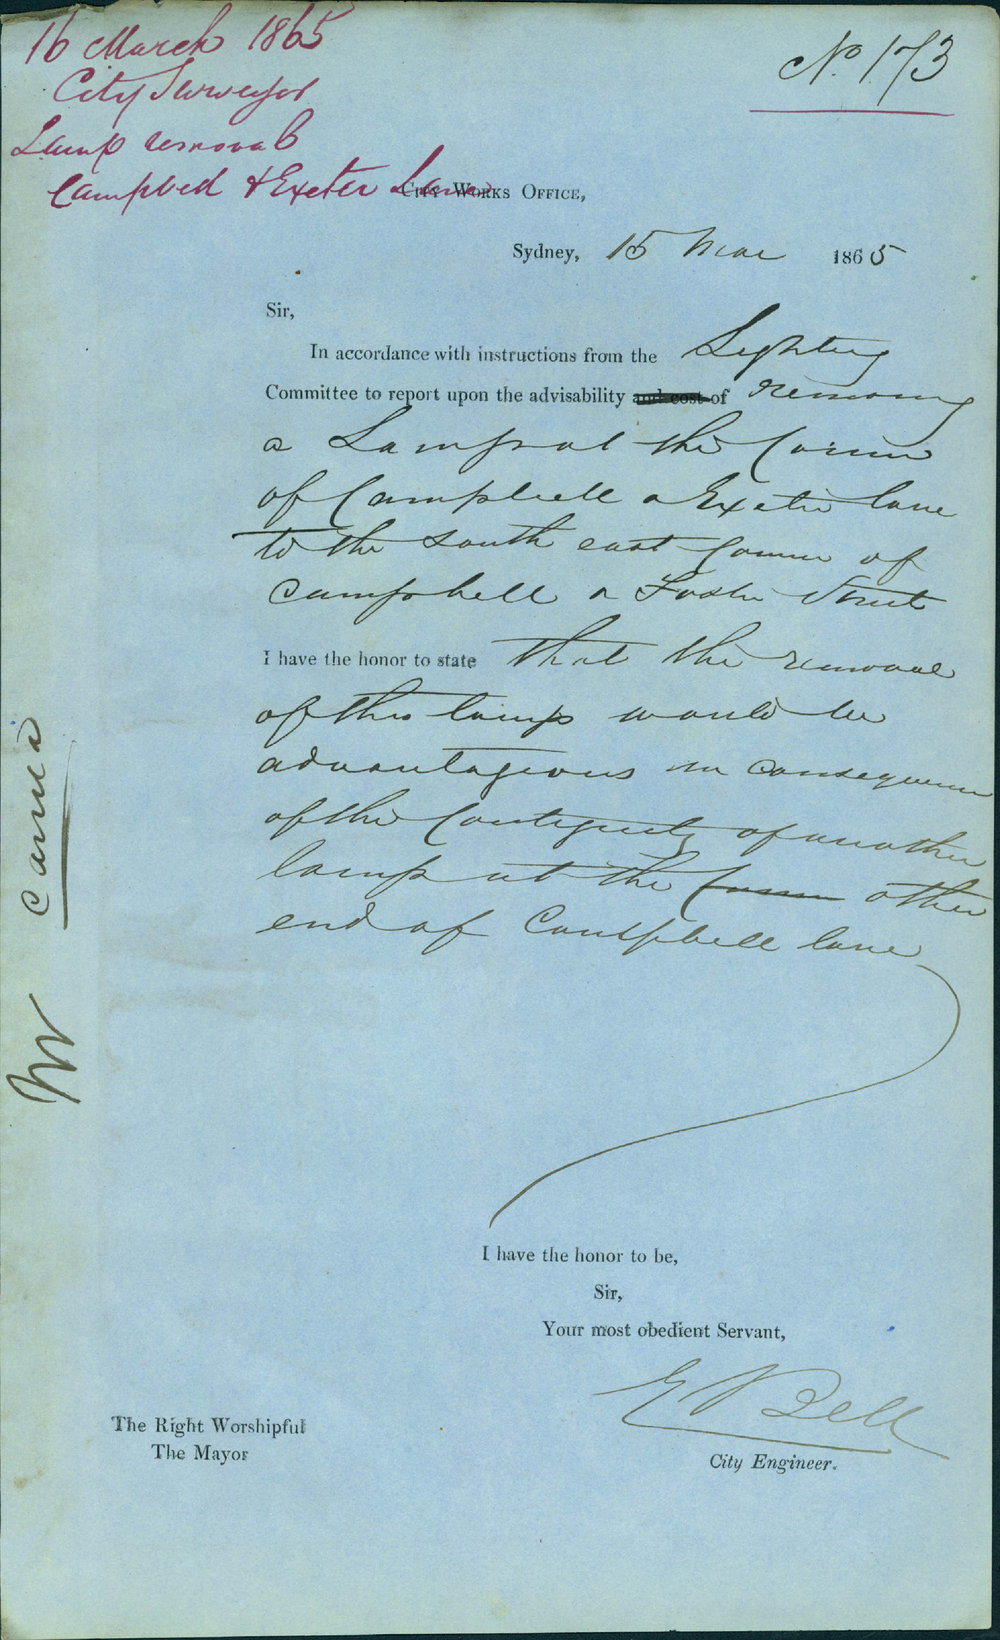 16 March 1865
City Surveyor
Lamp removal
Campbell & Exeter Lane
No. 173
City Works Office,
Sydney, 15 Mar 1865
Sir,
In accordance with instructions from the Lighting
Committee to report upon the advisability and cost of removing
a Lamp at the Corner
of Campbell & Exeter lane
to the south east Corner of
Campbell & Foster Street
I have the honor to state that the removal
of this lamp would be
advantageous in consequence
of the Contiguity of another
lamp at the Corner other
end of Campbell lane
I have the honor to be,
Sir,
Your most obedient Servant,
E Bell
City Engineer.
The Right Worshipful
The Mayor
Mr